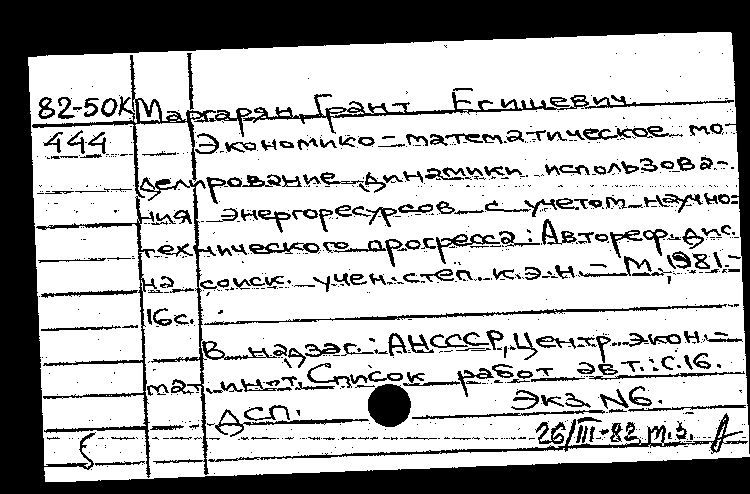 82-50К Маргарян, Грант Егишевич.
444 Экономико-математическое мо-
делирование динамики использова-
ния энергоресурсов с учетом научно-
технического прогресса: Автореф. дис.
на соиск. учен. степ. к.э.н. - М., 1981.-
16с.
В надзаг.: АН СССР, Центр. экон.-
мат. ин-т. Список работ авт.: с.16.
ДСП. Экз. N6.
5 26/III-82 т.з.